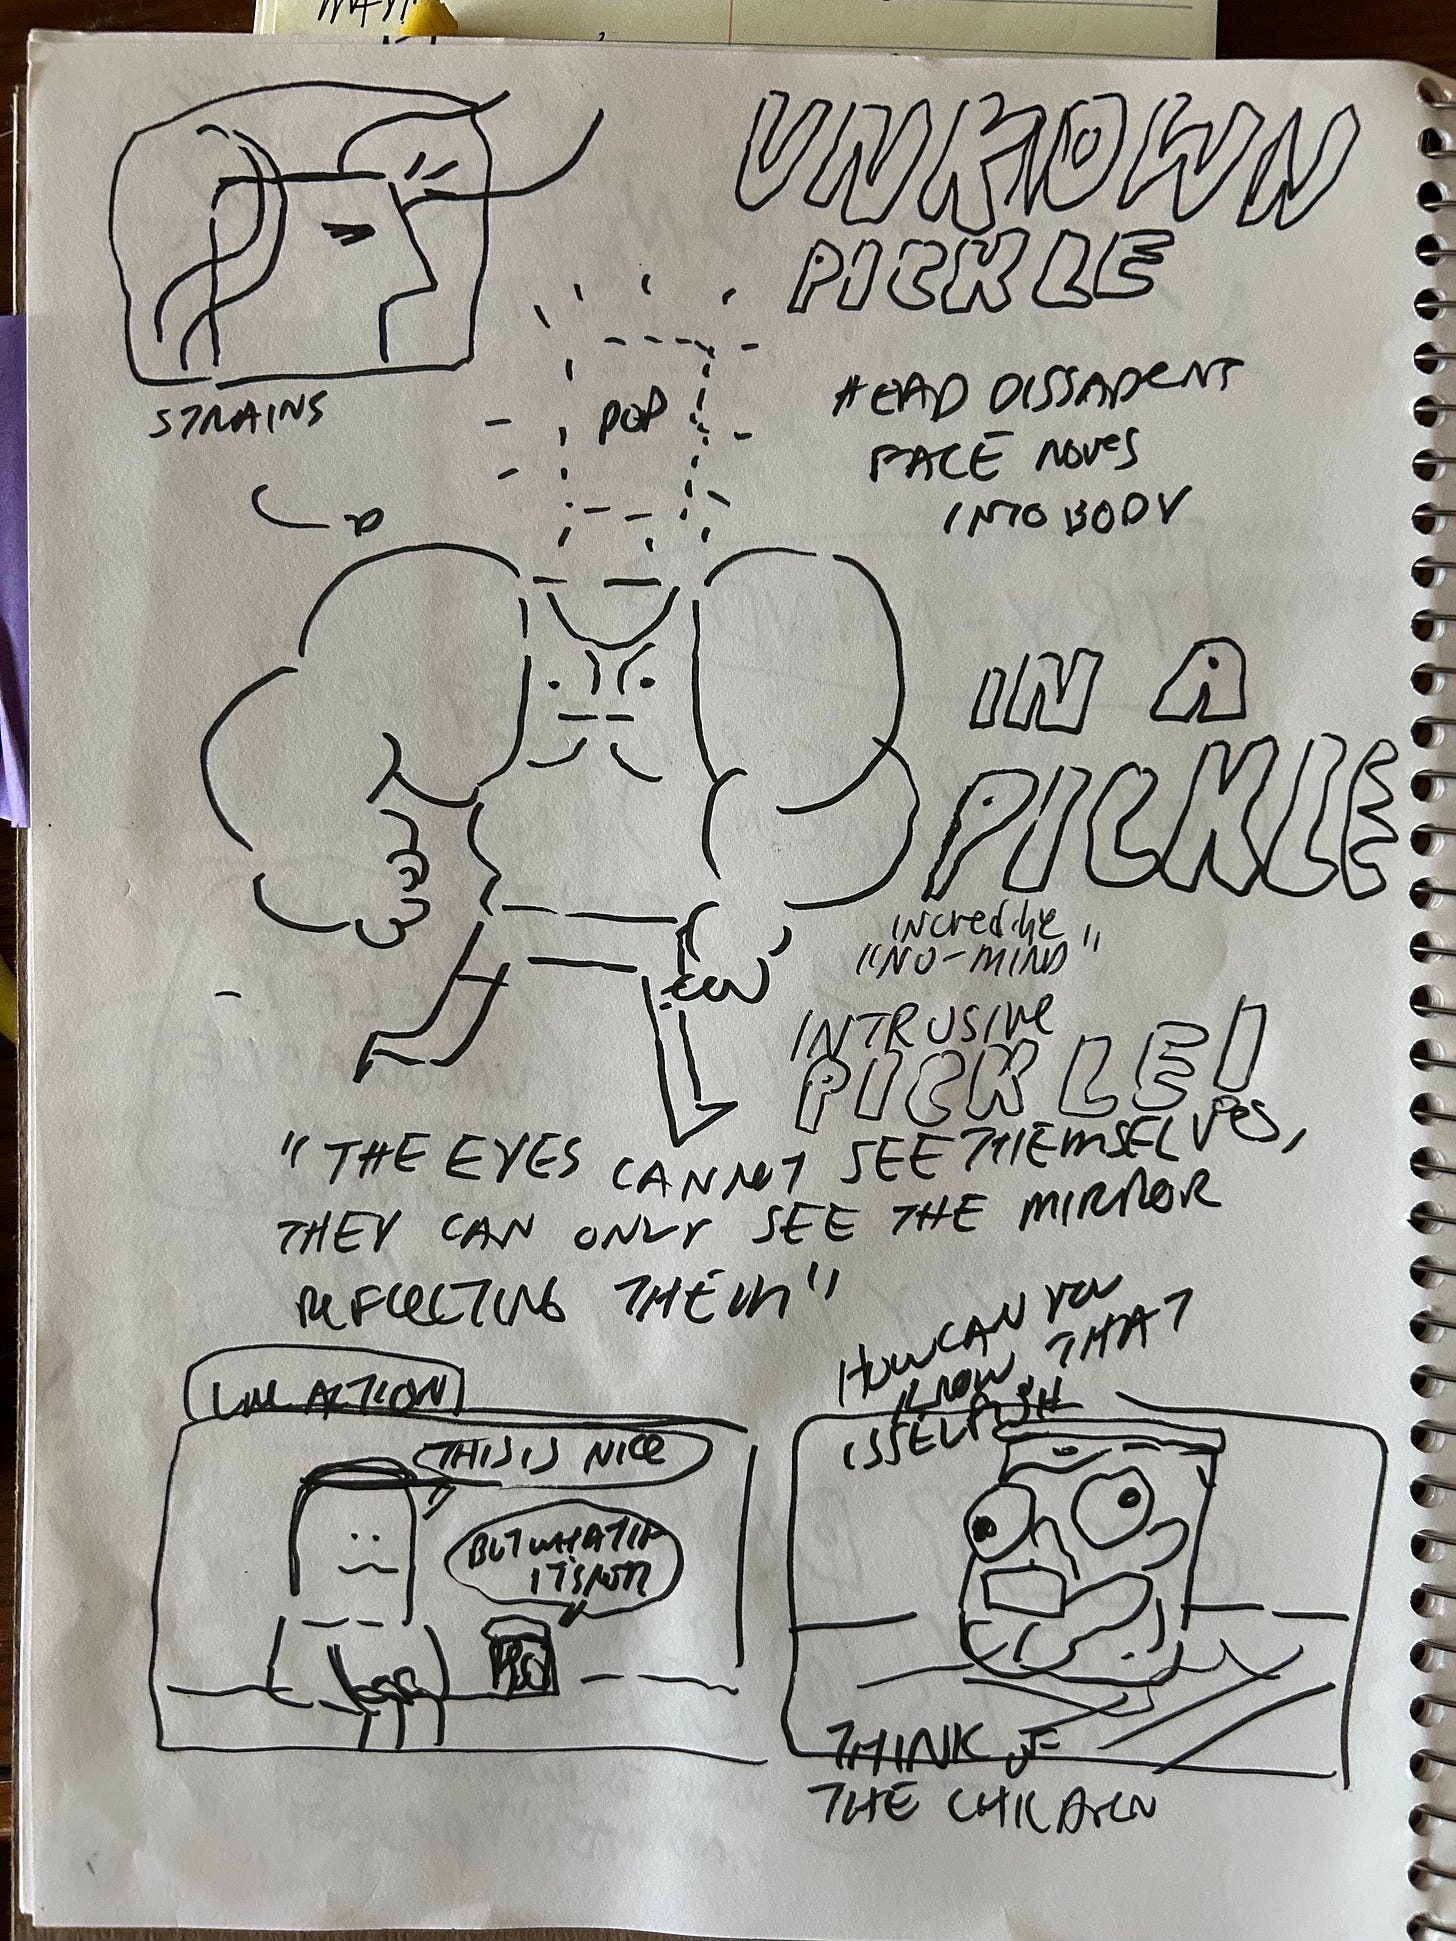 UNKOWN
PICKLE
STRAINS
POP
HEAD DISSAPEARS
FACE MOVES
INTO BODY
IN A
PICKLE
INCREDIBLE
"NO-MIND"
INTRUSIVE
PICKLE!
"THE EYES CANNOT SEE THEMSELVES,
THEY CAN ONLY SEE THE MIRROR
REFLECTING THEM"
LIVE ACTION
THIS IS NICE
BUT WHAT IF
IT'S NOT?
HOW CAN YOU
KNOW THAT
IS SELFISH
THINK OF
THE CHILDREN